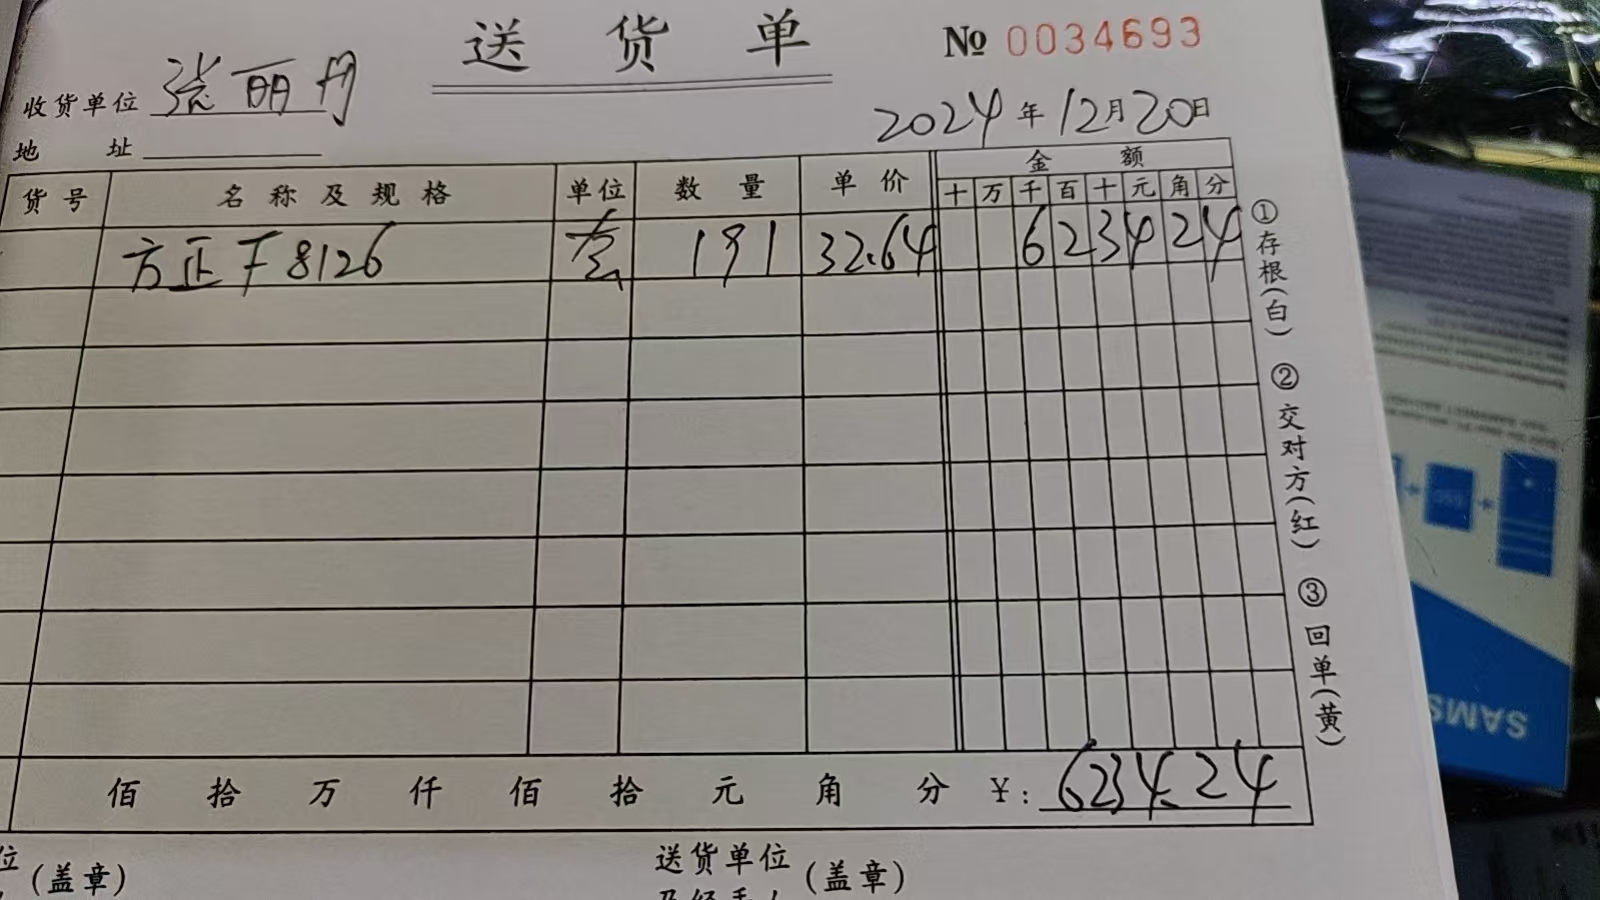 送货单 № 0034693
收货单位 张丽丹
2024年12月20日
地址
货号 名称及规格 单位 数量 单价 金额
十 万 千 百 十 元 角 分
方正F8126 套 191 32.64 6 2 3 4 2 4
①存根(白) ②交对方(红) ③回单(黄)
佰 拾 万 仟 佰 拾 元 角 分 ¥: 6234.24
位 送货单位
(盖章) (盖章)
SAMS